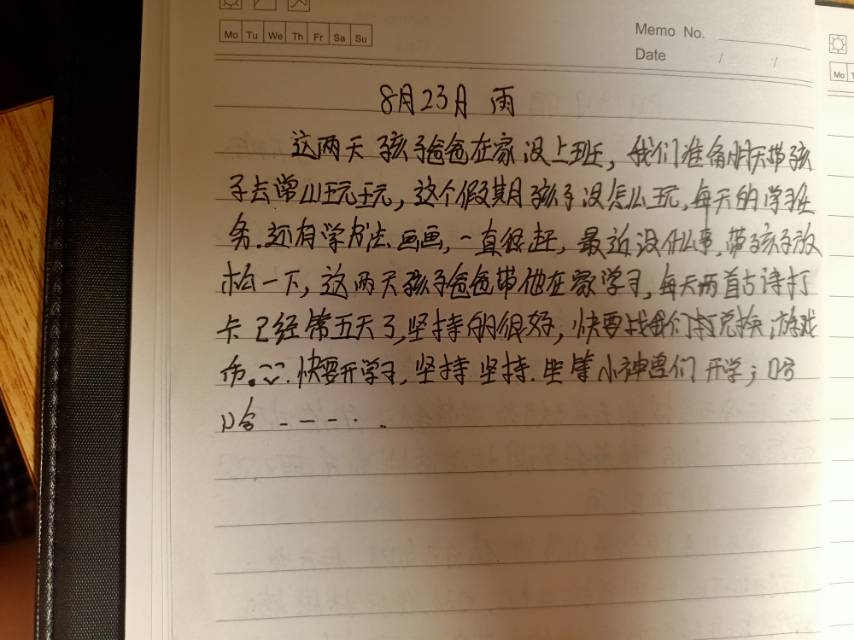 Mo Tu We Th Fr Sa Su
Memo No.
Date / /
8月23日 雨
这两天孩子爸爸在家没上班,我们准备明天带孩
子去常山玩玩,这个假期孩子没怎么玩,每天的学习任
务.还有学方法.画画,一直很赶,最近没什么事,带孩子放
松一下,这两天孩子爸爸带他在家学习,每天两首古诗打
卡已经第五天了,坚持的很好,快要找我们兑换游戏
币。快要开学了,坚持坚持.坐等小神兽们开学;哈
哈 - - - - . .
Mo